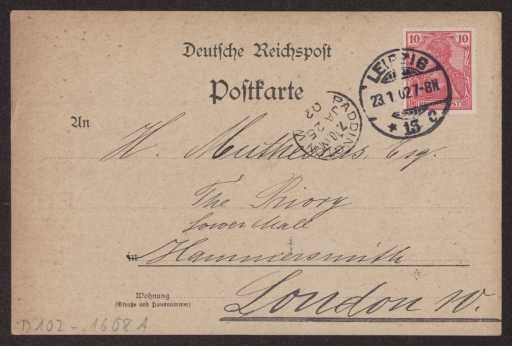 Deutsche Reichspost
Postkarte
10 10
LEIPZIG
23.1.02 7-8N
* 13 c
PADDINGTON
7.10 M
JA 25
02
An
H. Muthesius, Esq.
The Priory
Lower Mall
in Hammersmith
Wohnung
(Straße und Hausnummer)
London W.
D102-1668A